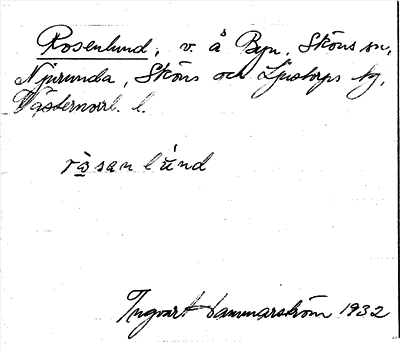 Rosenlund, v. å Byn, Sköns sn,
Njurunda, Sköns och Ljustorps tg,
Västernorrl. l.
ròsanlúnd
Ingvart Hammarström 1932